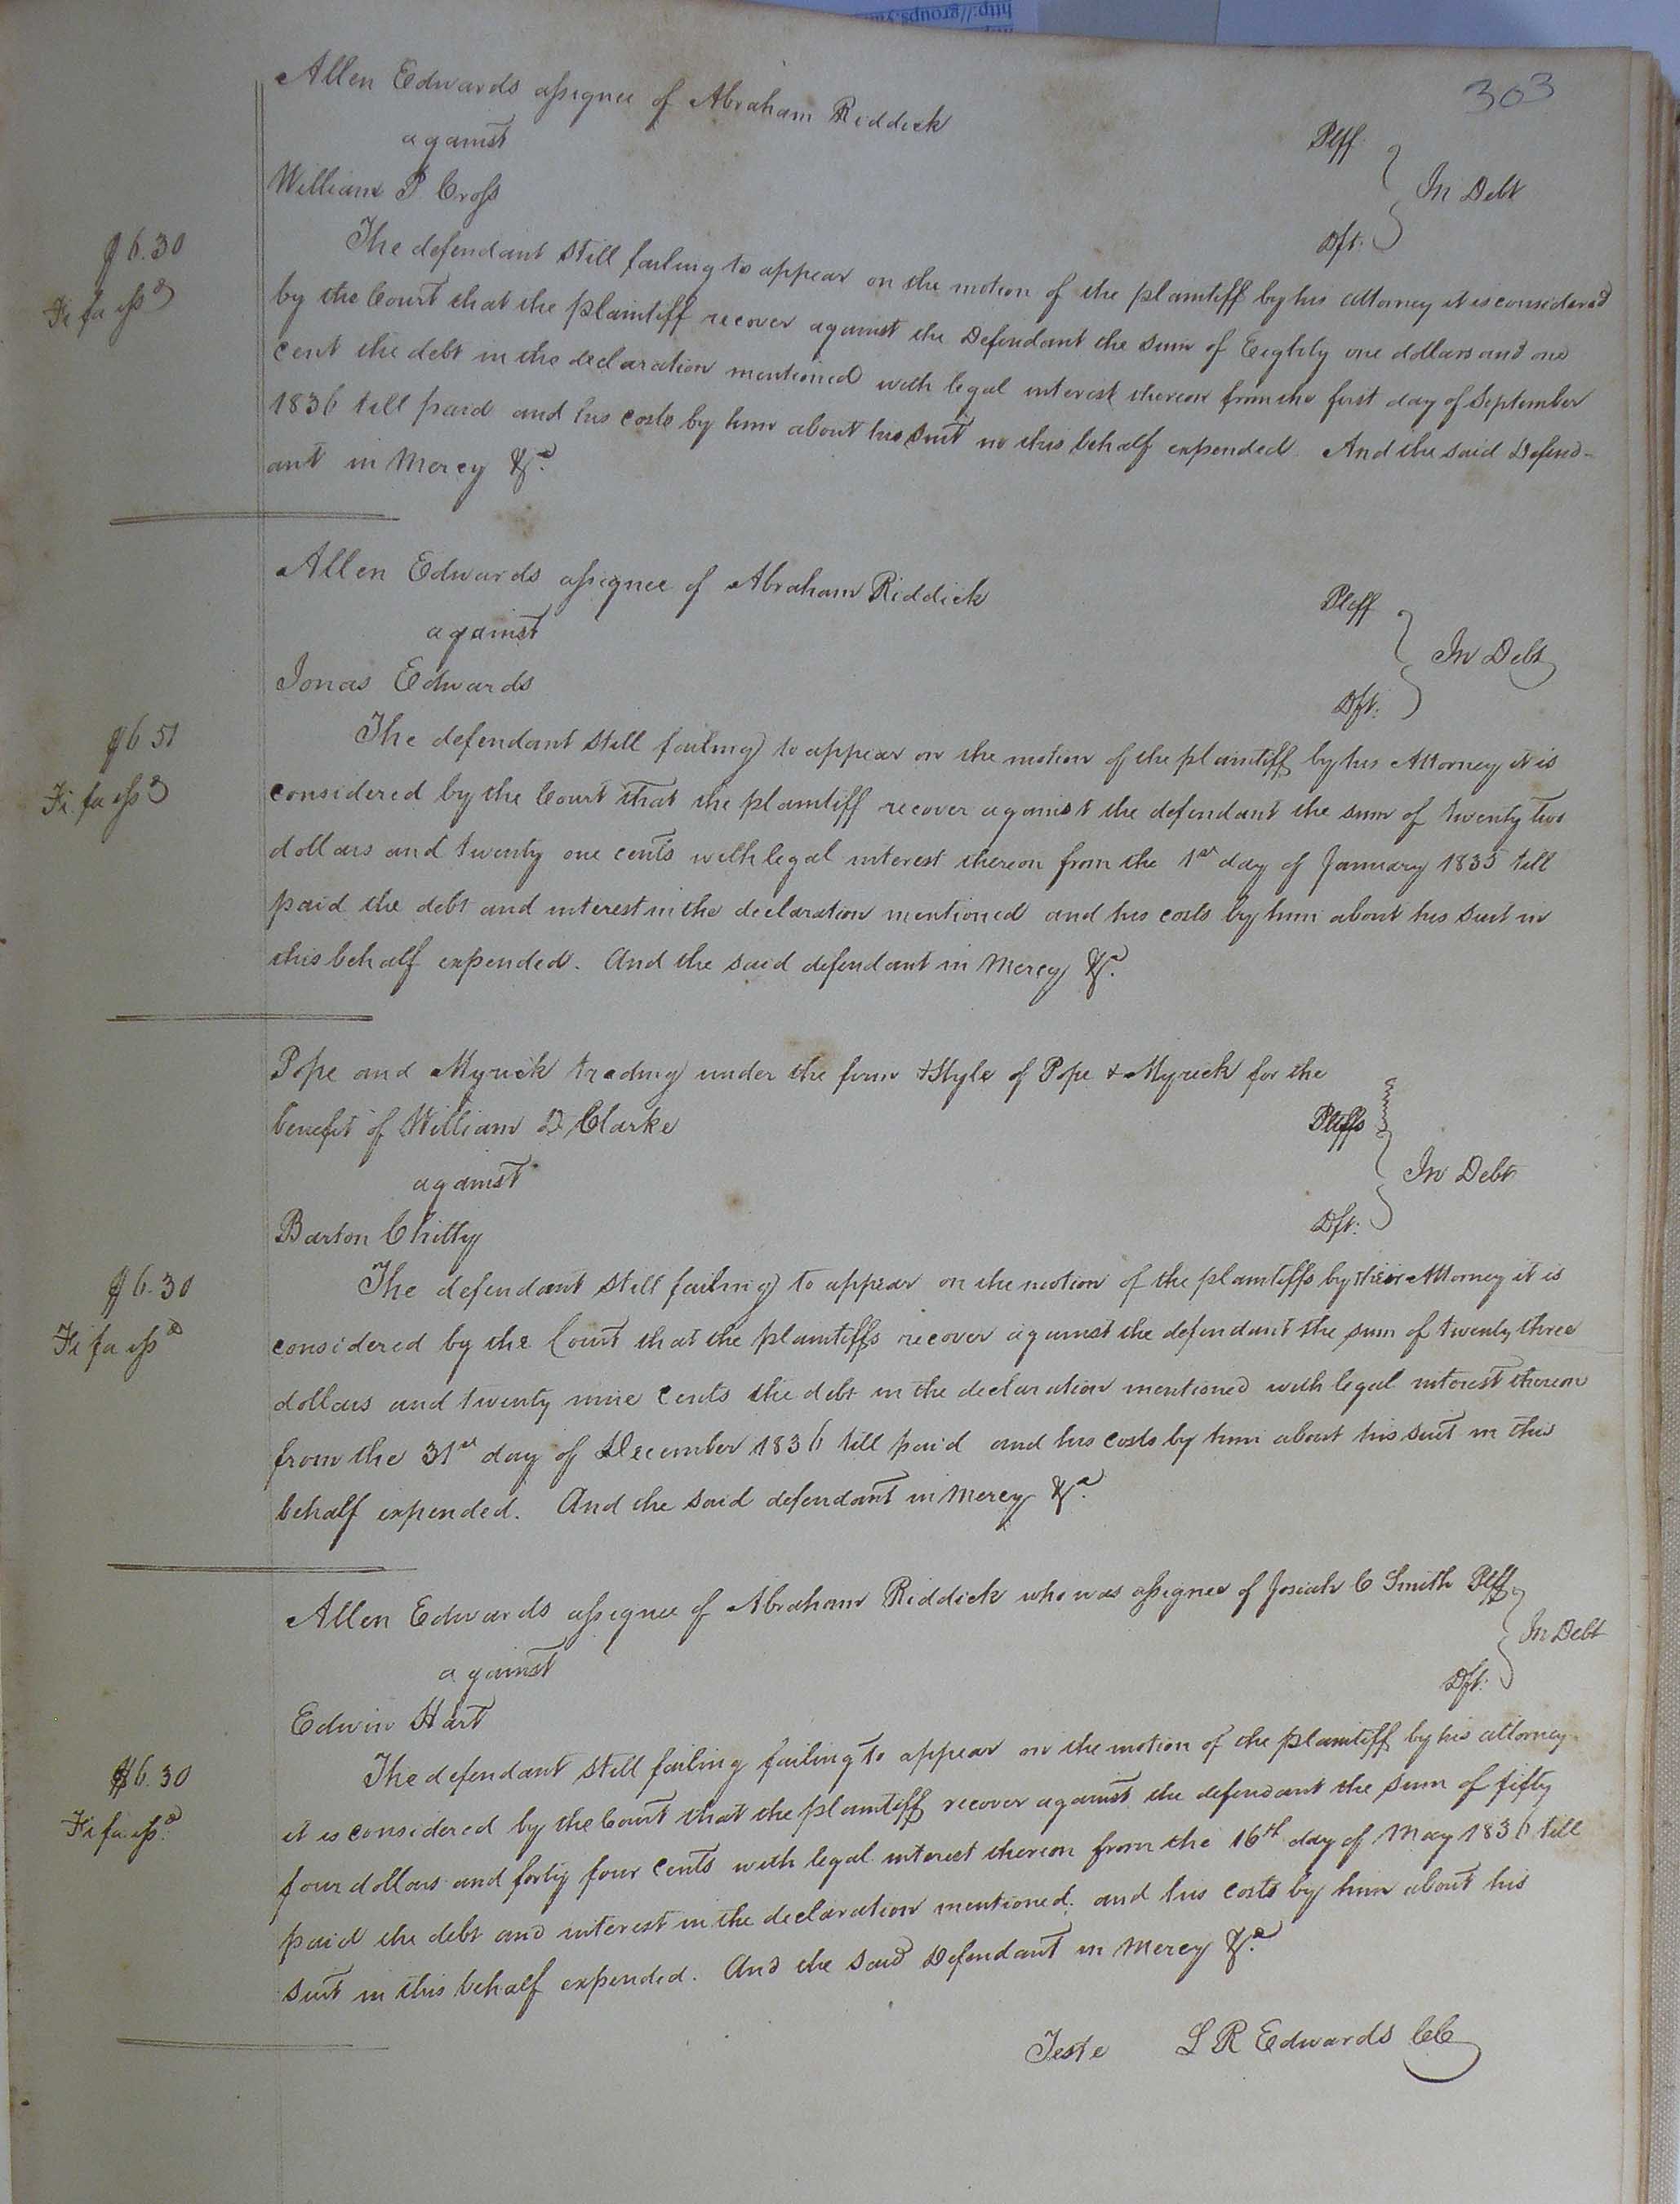 303
Allen Edwards assignee of Abraham Riddick Plff.
against In Debt
William P Cross Dft.
$6.30
Fi fa issd
The defendant still failing to appear on the motion of the plaintiff by his attorney it is considered
by the Court that the plaintiff recover against the Defendant the sum of Eighty one dollars and one
cent the debt in the declaration mentioned with legal interest thereon from the first day of September
1836 till paid and his costs by him about his suit in this behalf expended. And the said Defend-
ant in Mercy &c.
Allen Edwards assignee of Abraham Riddick Plff
against In Debt
Jonas Edwards Dft.
$6 51
Fi. fa issd
The defendant still failing to appear on the motion of the plaintiff by his Attorney it is
considered by the Court that the plaintiff recover against the defendant the sum of twenty two
dollars and twenty one cents with legal interest thereon from the 1st day of January 1835 till
paid the debt and interest in the declaration mentioned and his costs by him about his suit in
this behalf expended. And the said defendant in Mercy &c.
Pope and Myrick trading under the firm & Style of Pope & Myrick for the
benefit of William D Clarke Plffs
against In Debt
Barton Chitty Dft.
$6.30
Fi fa issd
The defendant still failing to appear on the motion of the plaintiffs by their Attorney it is
considered by the Court that the plaintiffs recover against the defendant the sum of twenty three
dollars and twenty nine cents the debt in the declaration mentioned with legal interest thereon
from the 31st day of December 1836 till paid and his costs by him about his suit in this
behalf expended. And the said defendant in Mercy &c.
Allen Edwards assignee of Abraham Riddick who was assignee of Josiah C Smith Plff
against In Debt
Edwin Hart Dft.
$6.30
Fi fa issd.
The defendant still failing failing to appear on the motion of the plaintiff by his attorney
it is considered by the Court that the plaintiff recover against the defendant the sum of fifty
four dollars and forty four cents with legal interest thereon from the 16th day of May 1836 till
paid the debt and interest in the declaration mentioned. and his costs by him about his
suit in this behalf expended. And the said Defendant in Mercy &c.
Teste L R Edwards CC